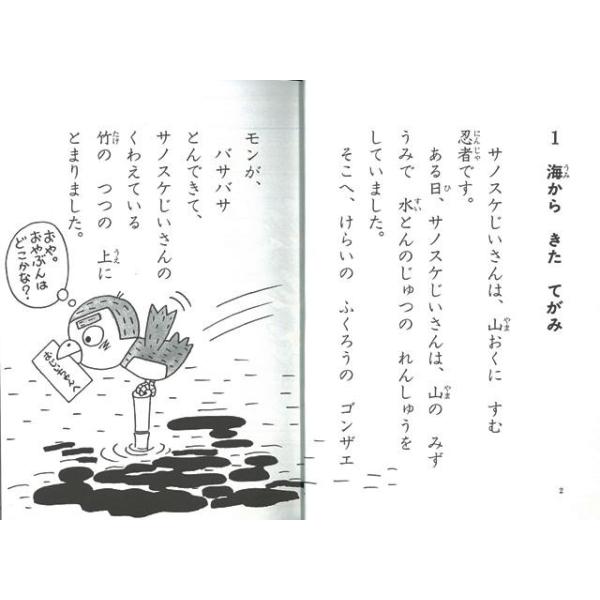 1 海から きた てがみ
サノスケじいさんは、山おくに すむ
忍者です。
ある日、サノスケじいさんは、山の みず
うみで 水とんのじゅつの れんしゅうを
していました。
そこへ、けらいの ふくろうの ゴンザエ
2
モンが、
バサバサ
とんできて、
サノスケじいさんの
くわえている
竹の つつの 上に
とまりました。
おや。
おやぶんは
どこかな?